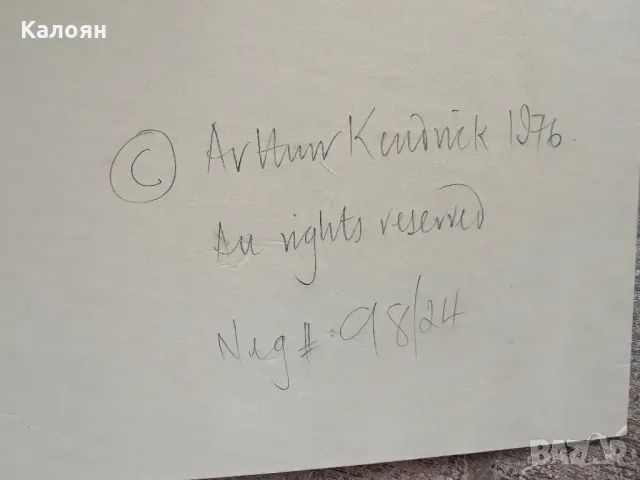 Калоян
© Arthur Kendrick 1976.
All rights reserved
Neg # 98/24
BAZAR